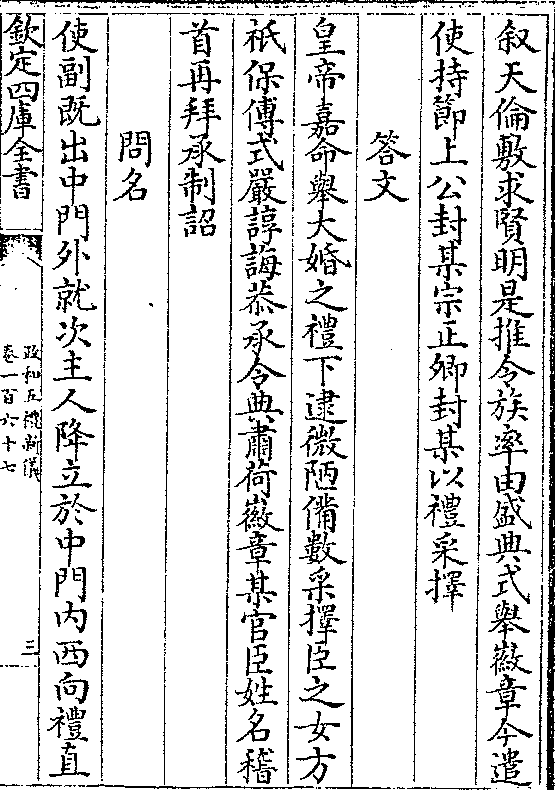 叙天倫敷求賢明是推令族率由盛典式舉徽章今遣
使持節上公封某宗正卿封某以禮采擇
答文
皇帝嘉命舉大婚之禮下逮微陋備數采擇臣之女方
祇保傅式嚴諄誨恭承令典肅荷徽章某官臣姓名稽
首再拜承制詔
問名
使副既出中門外就次主人降立於中門内西向禮直
欽定四庫全書
政和五禮新儀
卷一百六十七
三